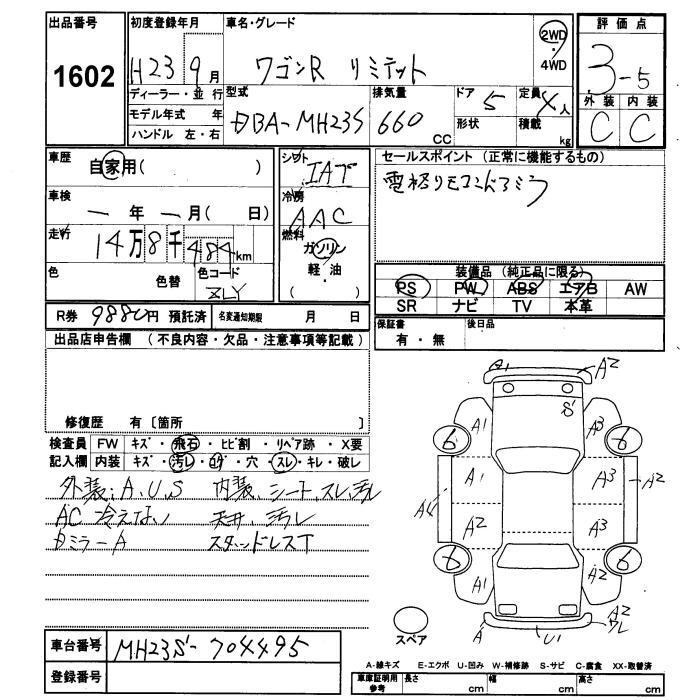 出品番号
1602
初度登録年月
H23年 9月
ディーラー・並行
モデル年式 年
ハンドル 左・右
車名・グレード
ワゴンR リミテット
2WD
・
4WD
型式
DBA-MH23S
排気量
660
CC
ドア
5
形状
定員
4人
積載
kg
評価点
3-5
外装 内装
C C
車歴
自家用( )
車検
ー年ー月( 日)
走行
14万8千484km
色
色替
色コード
ZLY
シフト
IAT
冷房
AAC
燃料
ガソリン
軽・油
( )
セールスポイント (正常に機能するもの)
電格リモコンドアミラ
装備品 (純正品に限る)
PS PW ABS エアB AW
SR ナビ TV 本革
R券 9880円 預託済
名変通知期限 月 日
保証書
有・無
後日品
出品店申告欄 (不良内容・欠品・注意事項等記載)
修復歴 有〔箇所 〕
検査員 FW キズ・飛石・ヒビ割・リペア跡・X要
記入欄 内装 キズ・汚レ・コゲ・穴・スレ・キレ・破レ
外装:A、U、S 内装、シート、スレ、汚レ
AC 冷えない 天井、汚レ
Dミラー A スタッドレスT
A1 A2
S'
A1 A3
6 6
A1 A3
A4 A2
A2 A3
6 6
A1 A2
A U1 A2
ワレ
スペア
車台番号 MH23S-704495
登録番号
A-線キズ E-エクボ U-凹み W-補修跡 S-サビ C-腐食 XX-取替済
車庫証明用
参考
長さ cm 幅 cm 高さ cm